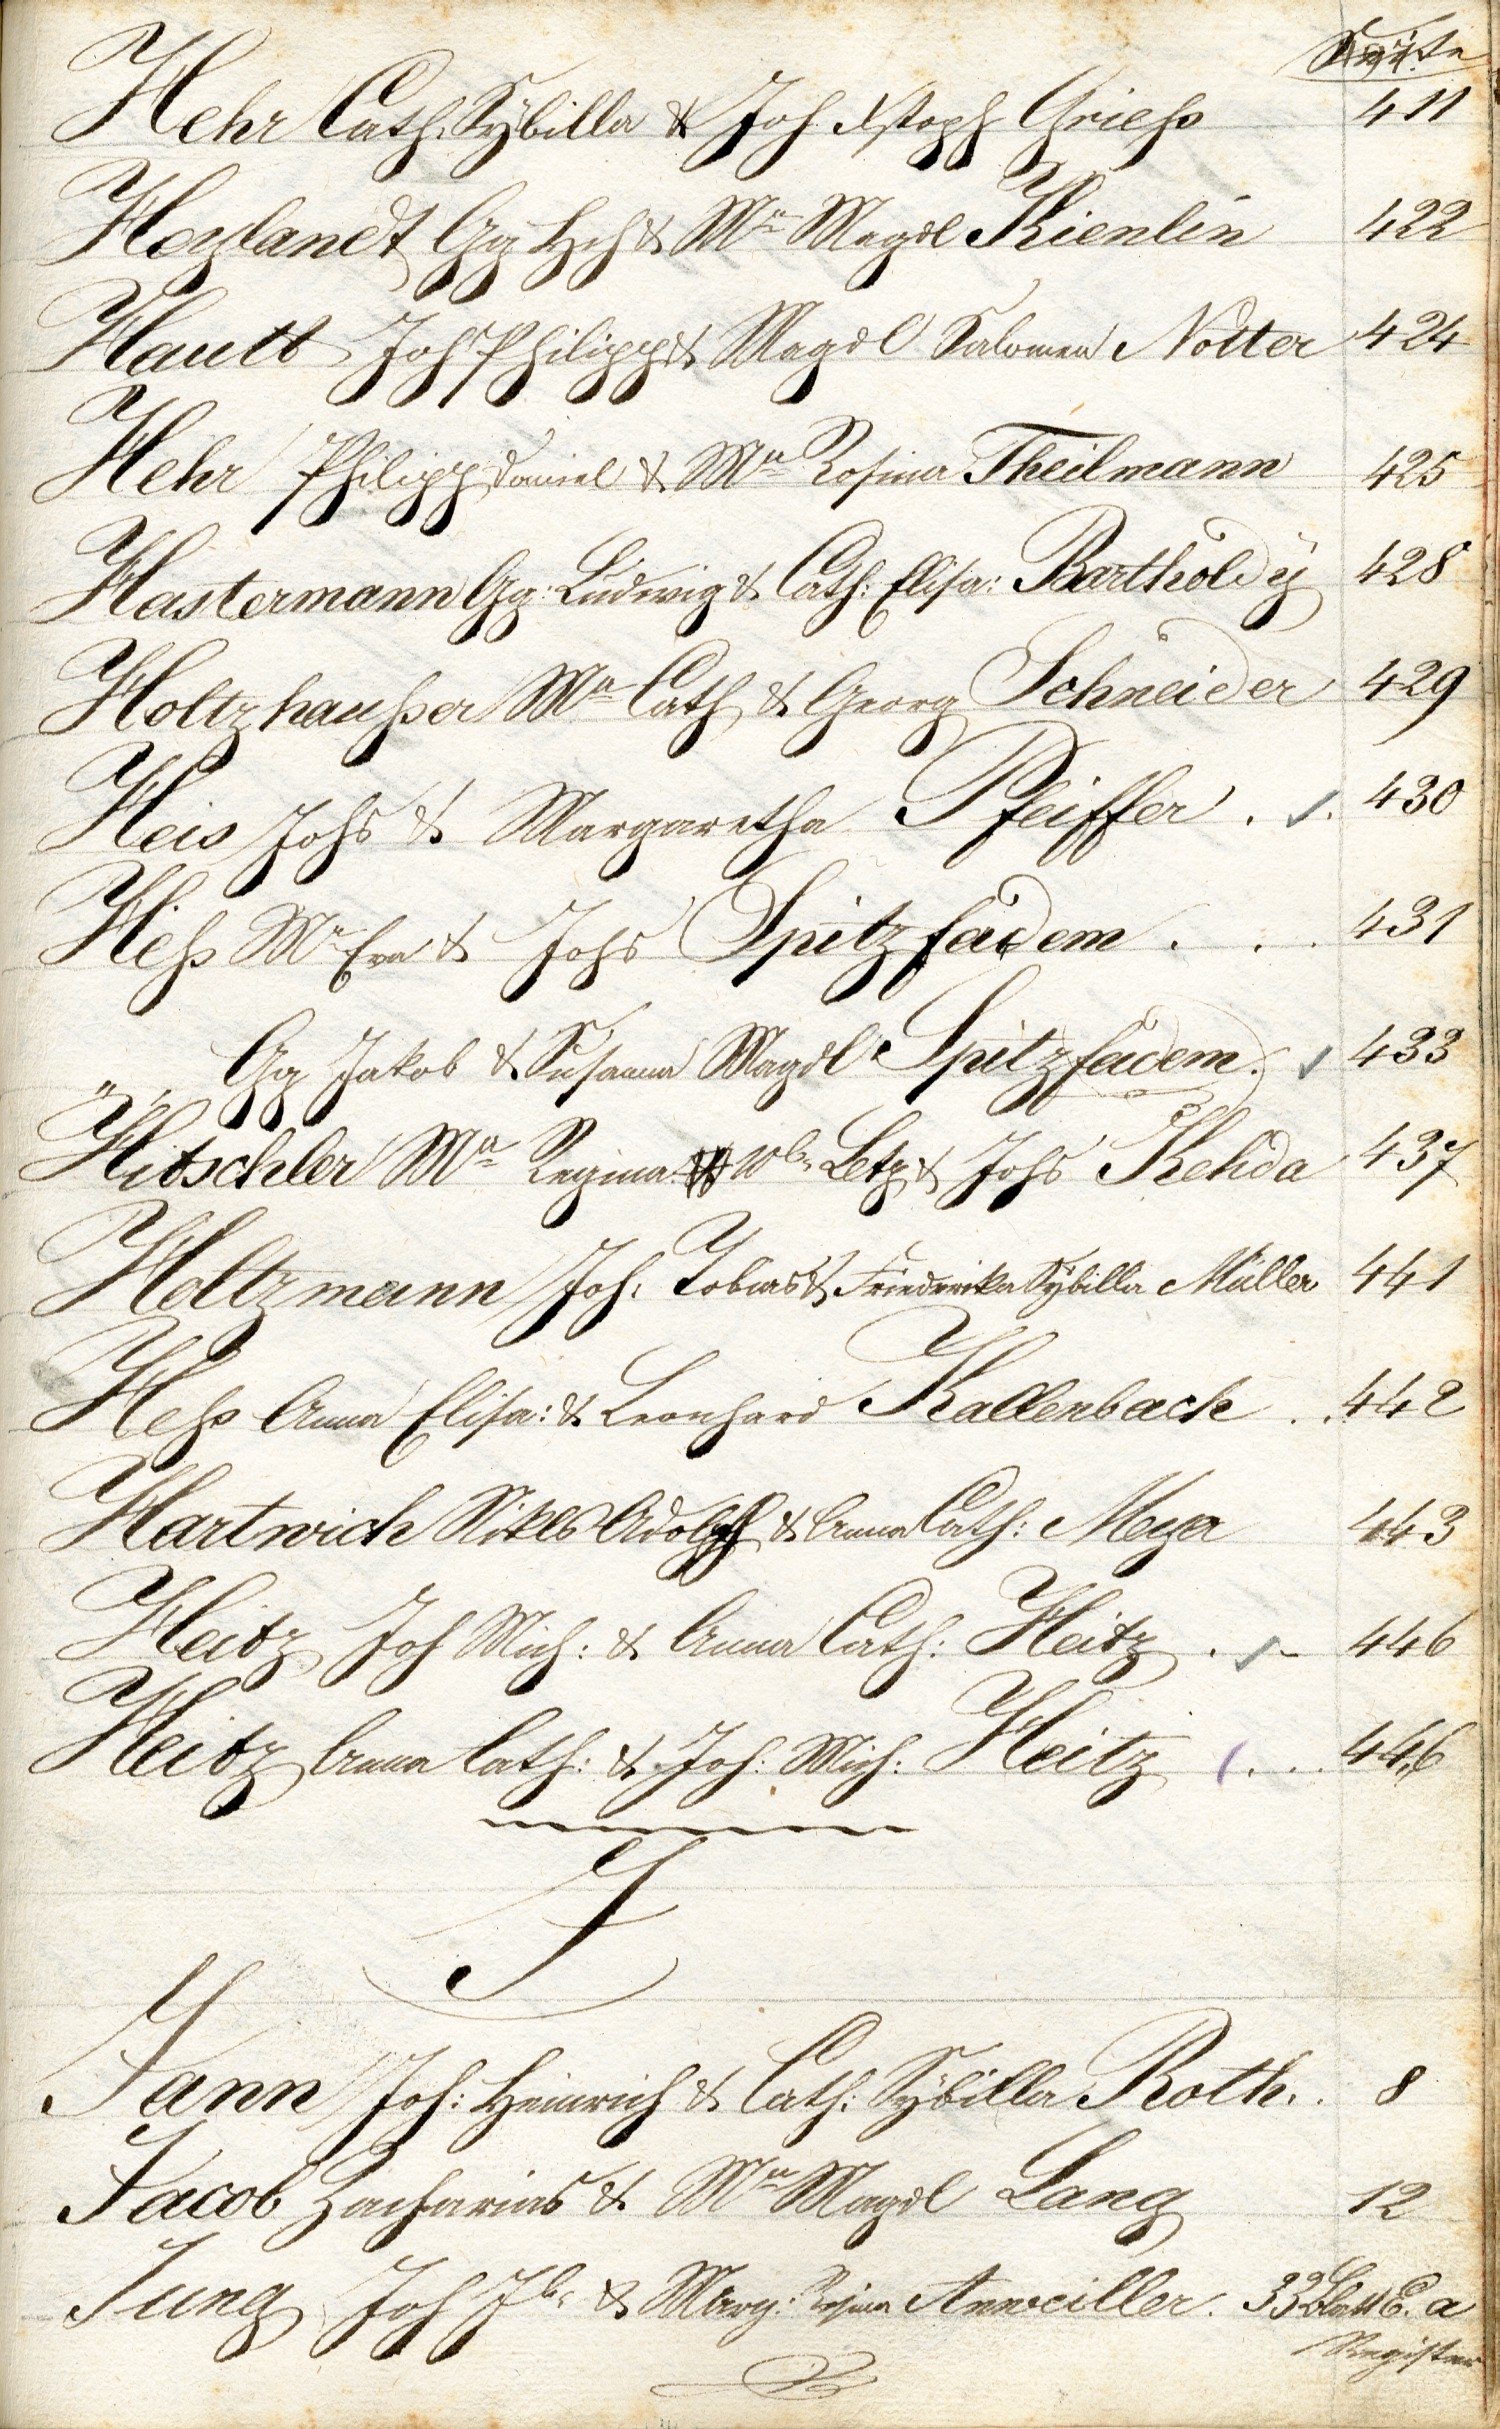 Seite
Hehr Cath. Sÿbilla & Joh. Xstoph Grieß 411
Heylandt Gg Hch & Ma Magdl Kienlin 422
Hautt Joh Philipp & Magdl Salomea Notter 424
Hehr Philipp Daniel & Ma Rosina Theilmann 425
Hastermann Gg: Ludwig & Cath: Elisa: Bartholdÿ 428
Holtzhaußer Ma Cath & Georg Schneider 429
Heis Johs & Margaretha Pfeiffer . . 430
Heß Ma Eva & Johs Spitzfadem . . . 431
" " Gg Jakob & Susanna Magdl Spitzfadem. 433
Hitschler Ma Regina Wb. Letz & Johs Kehda 437
Holtzmann Joh. Tobias & Friederika Sÿbilla Müller 441
Heß Anna Elisa: & Leonhard Kallenbach . . 442
Hartwich Nikls Adolph & Anna Cath: Meyer 443
Heitz Joh Mich: & Anna Cath: Heitz . - 446
Heitz Anna Cath: & Joh: Mich: Heitz . . . 446
J
Jann Joh: Heinrich & Cath: Sÿbilla Roth. . 8
Jacob Zacharias & Ma Magdl Lang 12
Jung Joh Jb. & Marg: Rosina Annweiller. 33 Blatt E. a
Register